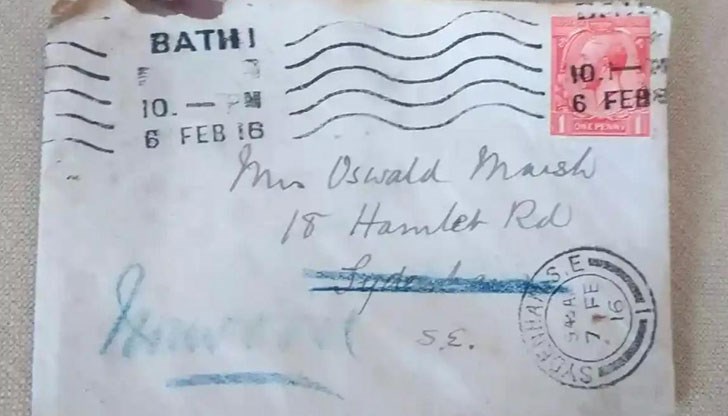 BATH
10. — PM
6 FEB 16
10.
6 FEB
ONE PENNY
Mrs Oswald Marsh
18 Hamlet Rd
Sydenham
S.E.
SYDENHAM S.E.
7 FE
16